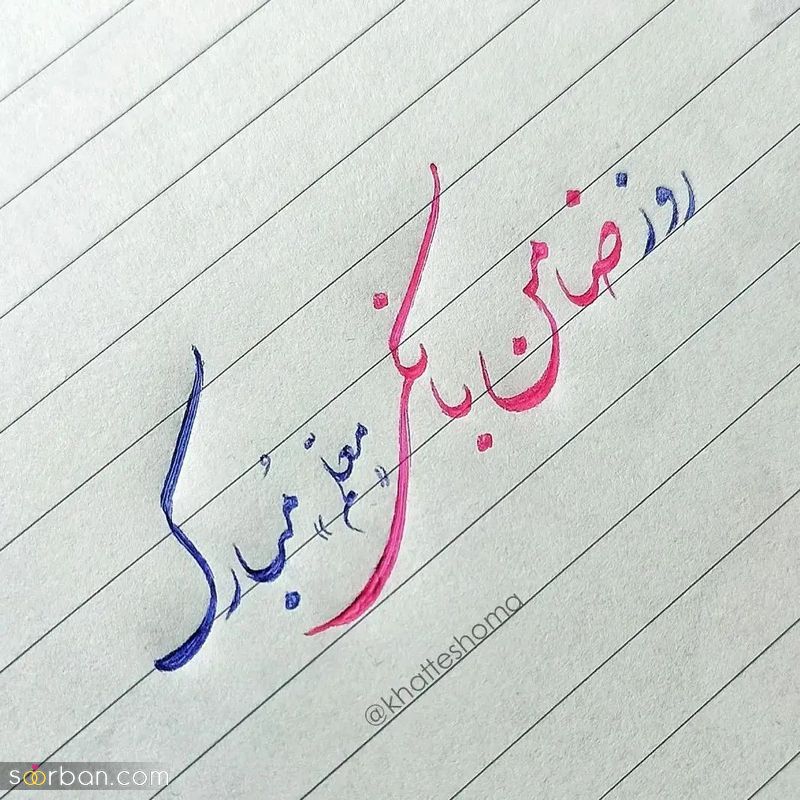 روز ضامن بانکی
«معلم» مُبارک
@khatteshoma
soorban.com